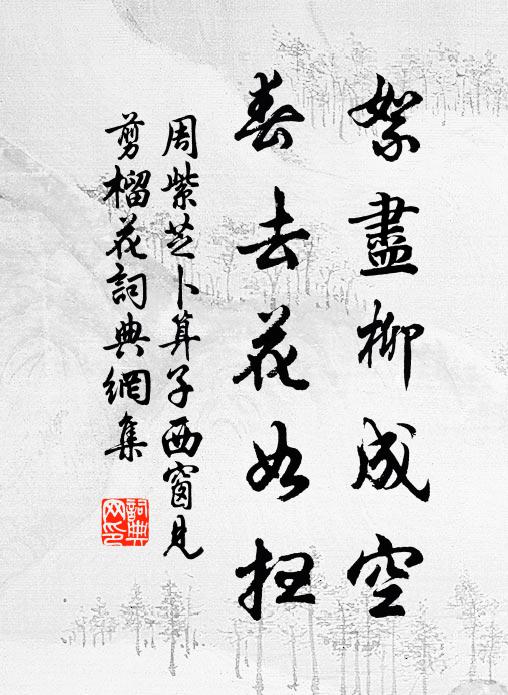 絮盡柳成空
春去花如掃
周紫芝卜算子西窗見
剪榴花詞典網集
詞典网印